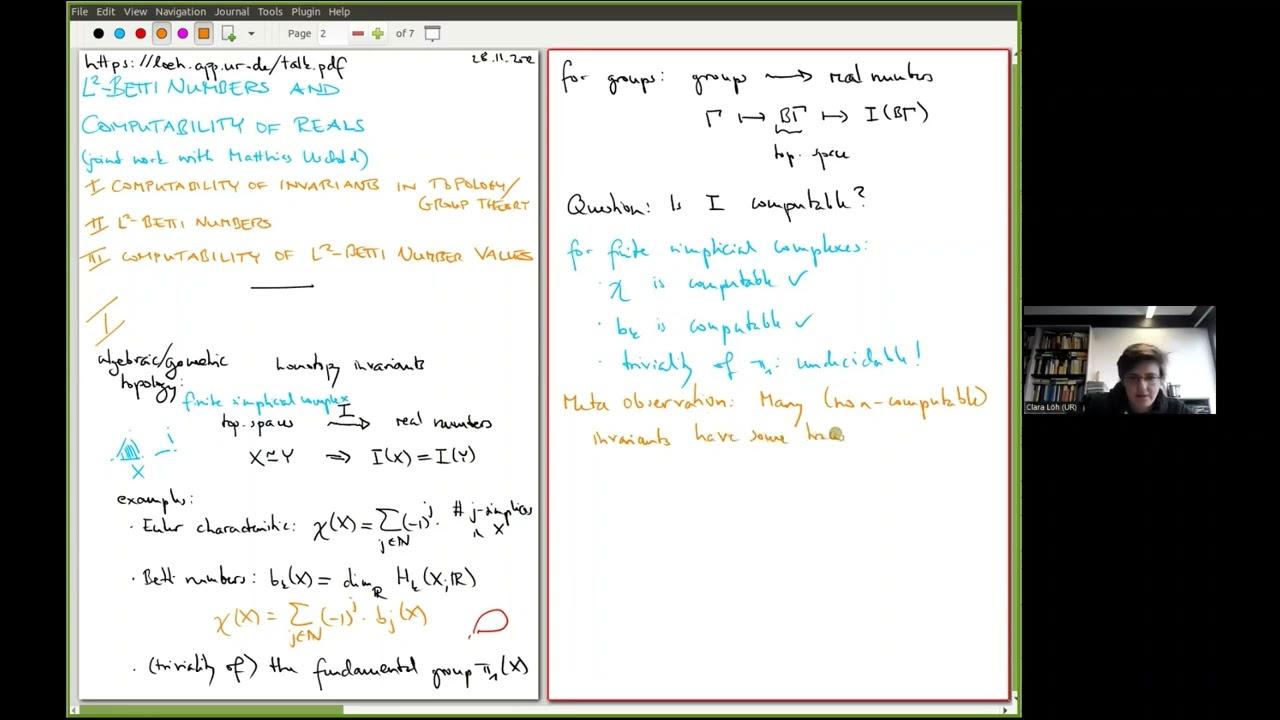 File Edit View Navigation Journal Tools Plugin Help
Page 2 of 7
https://loeh.app.ur.de/talk.pdf
L²-BETTI NUMBERS AND
COMPUTABILITY OF REALS
(joint work with Matthias
I COMPUTABILITY OF INVARIANTS IN TOPOLOGY/
GROUP THEORY
II L²-BETTI NUMBERS
III COMPUTABILITY OF L²-BETTI NUMBER VALUES
I
algebraic/geometric
topology:
homotopy invariants
finite simplicial complex
top. spaces ⟶ real numbers
I
X≃Y ⟹ I(X) = I(Y)
X
examples:
· Euler characteristic: χ(X) = ∑_{j∈ℕ} (-1)^j · # j-simplices in X
· Betti numbers: b_k(X) = dim_ℝ H_k(X;ℝ)
χ(X) = ∑_{j∈ℕ} (-1)^j · b_j(X)
· (triviality of) the fundamental group π₁(X)
for groups: groups ⟿ real numbers
Γ ↦ BΓ ↦ I(BΓ)
top. space
Question: Is I computable?
for finite simplicial complexes:
· χ is computable ✓
· b_k is computable ✓
· triviality of π₁: undecidable!
Meta observation: Many (non-computable)
invariants have some
Clara Löh (UR)